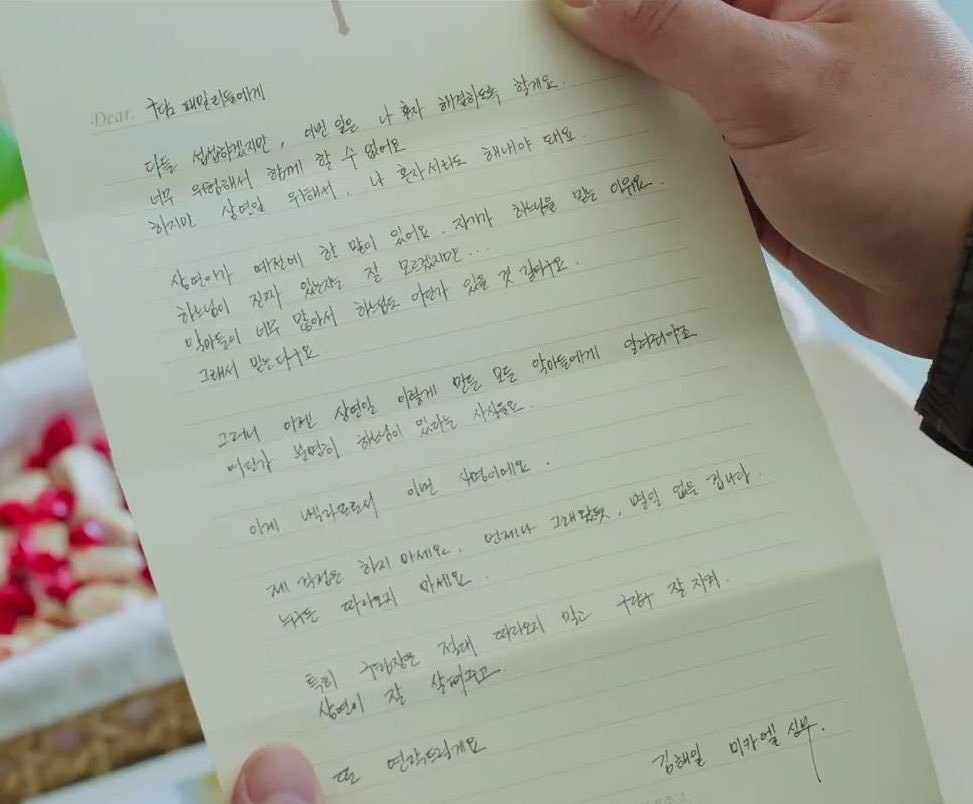 Dear. 구담 패밀리들에게
다들 섭섭하겠지만, 이번 일은 나 혼자 해결하도록 할게요.
너무 위험해서 함께 할 수 없어요
하지만 상연일 위해서, 나 혼자서라도 해내야 돼요.
상연이가 예전에 한 말이 있어요. 자기가 하느님을 믿는 이유요.
하느님이 진짜 있는지는 잘 모르겠지만...
악마들이 너무 많아서 하느님도 어딘가 있을 것 같다구요.
그래서 믿는다구요.
그러니 이젠 상연일 이렇게 만든 모든 악마들에게 알려줘야죠
어딘가 분명히 하느님이 있다는 사실을요.
이게 벨라또로서 이번 사명이에요.
제 걱정은 하지 마세요. 언제나 그래왔듯, 별일 없을 겁니다.
누구든 따라오지 마세요.
특히 구담장은 절대 따라오지 말고 구담구 잘 지켜.
상연이 잘 살펴주고.
또 연락드릴게요
김해일 미카엘 신부.